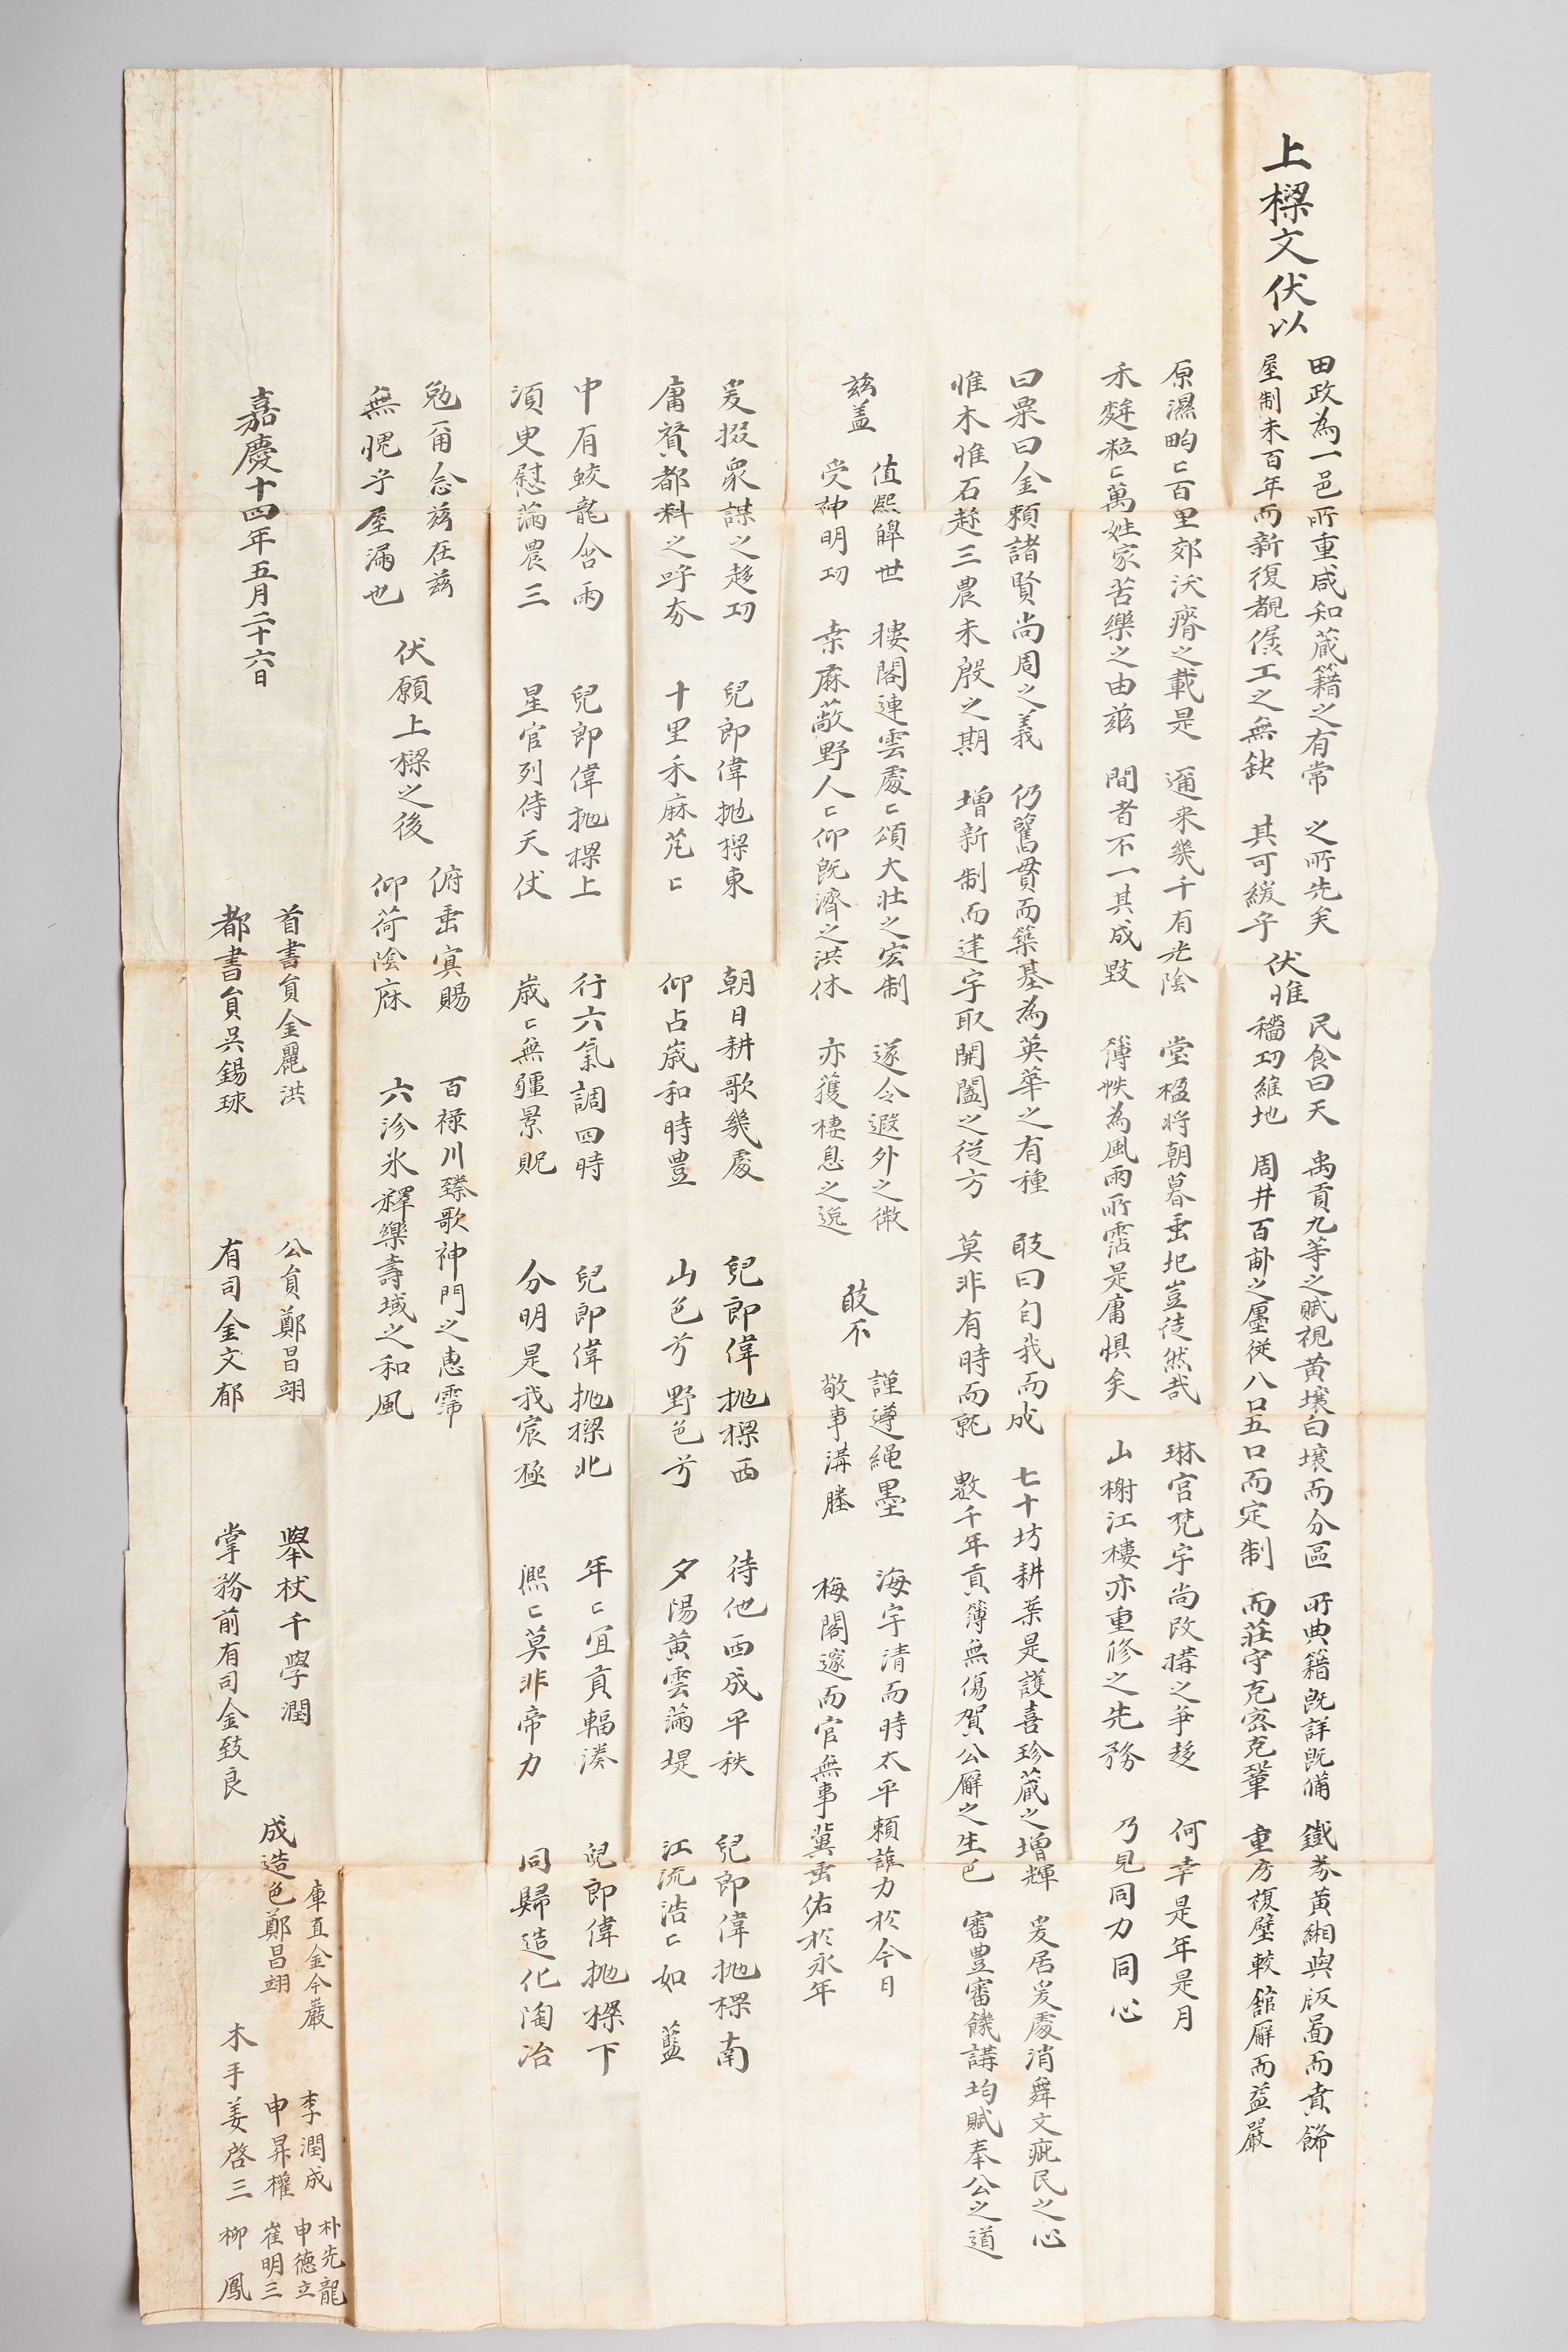 上樑文伏以
田政為一邑所重咸知藏籍之有常
屋制未百年而新復覩僝工之無缺
之所先矣
其可緩乎
伏惟
民食曰天
穡功維地
禹貢九等之賦視黃壤白壤而分區
周井百畝之廛從八口五口而定制
所典籍既詳既備
而莊守克密克鞏
鐵券黃緗與版圖而賁餙
重房複壁較舘廨而益嚴
原濕畇〻百里郊沃瘠之載是
禾麰粒〻萬姓家苦樂之由玆
邇來幾千有光陰
間者不一其成毀
堂楹將朝暮垂圯豈徒然哉
簿帙為風雨所霑是庸惧矣
琳宮梵宇尚改搆之爭趍
山榭江樓亦重修之先務
何幸是年是月
乃見同力同心
曰粟曰金賴諸賢尚周之義
惟木惟石趂三農未殷之期
仍舊貫而築基為英華之有種
增新制而建宇取開闔之從方
敢曰自我而成
莫非有時而就
七十坊耕業是護喜珍藏之增輝
數千年貢簿無傷賀公廨之生色
爰居爰處消舞文疵民之心
審豊審饑講均賦奉公之道
玆盖
值熙皥世
受神明功
樓閣連雲處〻頌大壯之宏制
桒麻蔽野人〻仰既濟之洪休
遂令遐外之徼
亦獲棲息之
敢不
謹遵繩墨
敬事溝塍
海宇清而時太平賴誰力於今日
梅閣邃而官無事冀垂佑於永年
爰掇衆謀之趍功
庸贊都料之呼夯
兒郎偉抛樑東
十里禾麻芃〻
朝日耕歌幾處
仰占歲和時豊
兒郎偉抛樑西
山色兮野色兮
待他西成平秩
夕陽黃雲滿堤
兒郎偉抛樑南
江流浩〻如藍
中有蛟龍含雨
須臾慰滿農三
兒郎偉抛樑上
星官列侍天仗
行六氣調四時
歲〻無疆景貺
兒郎偉抛樑北
分明是我宸極
年〻宜貢輻湊
熈〻莫非帝力
兒郎偉抛樑下
同歸造化陶冶
勉爾念玆在玆
無愧乎屋漏也
伏願上樑之後
俯垂冥賜
仰荷陰庥
百祿川臻歌神門之惠霈
六沴氷釋樂壽域之和風
嘉慶十四年五月二十六日
首書負金麗洪
都書負吳錫球
公負鄭昌翊
有司金文郁
擧杖千學潤
掌務前有司金致良
成造色鄭昌翊
庫直金今巖
木手姜啓三
李潤成
申昇權
朴先龍
申德立
崔明三
柳鳳